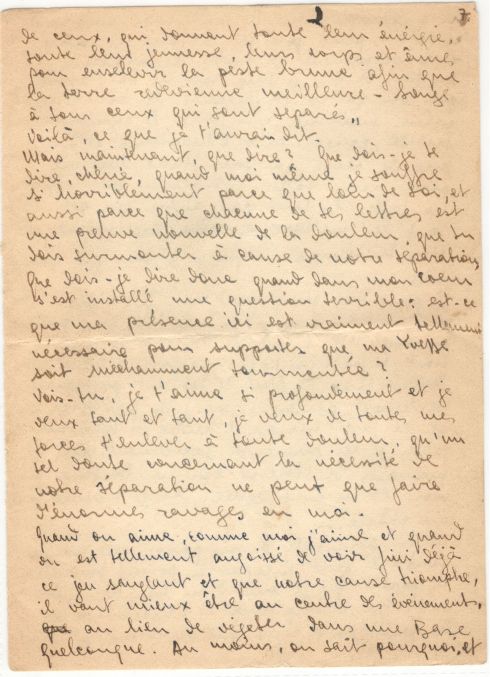 2 7
de ceux, qui donnent toute leur énergie,
toute leur jeunesse, leurs corps et âmes
pour ensevelir la peste brune afin que
la terre redevienne meilleure - songe
à tous ceux qui sont separés„
Voilà, ce que je t'aurai dit.
Mais maintenant, que dire? Que dois-je te
dire, chérie, quand moi même je souffre
si horriblement parce que loin de toi, et
aussi parce que chacune de tes lettres est
une preuve nouvelle de la douleur, que tu
dois surmonter à cause de notre séparation
Que dois-je dire donc quand dans mon coeur
s'est installé une question terrible: est-ce
que ma présence ici est vraiment tellement
nécessaire pour supporter que ma Yvette
soit méchamment tourmentée?
Vois-tu, je t'aime si profondément et je
veux tant et tant, je veux de toutes mes
forces t'enlever à toute douleur, qu'un
tel doute concernant la nécessité de
notre séparation ne peut que faire
d'énormes ravages en moi.
Quand on aime, comme moi j'aime et quand
on est tellement angoissé de voir fini déjà
ce jeu sanglant et que notre cause triomphe,
il vaut mieux être au centre des événements,
au lieu de végéter dans une Base
quelconque. Au moins, on sait pourquoi, et